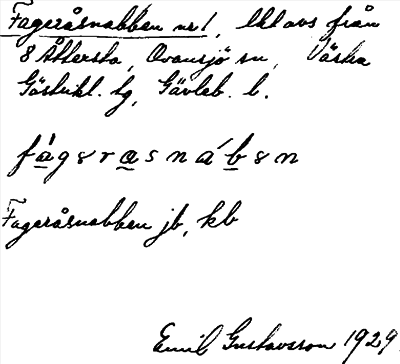 Fageråsnabben nr 1, lht avs från
8 Åttersta, Ovansjö sn, Västra
Gästrikl. tg, Gävleb. l.
fágɘrɑsnábɘn
Fageråsnabben jb, kb
Emil Gustavsson 1929